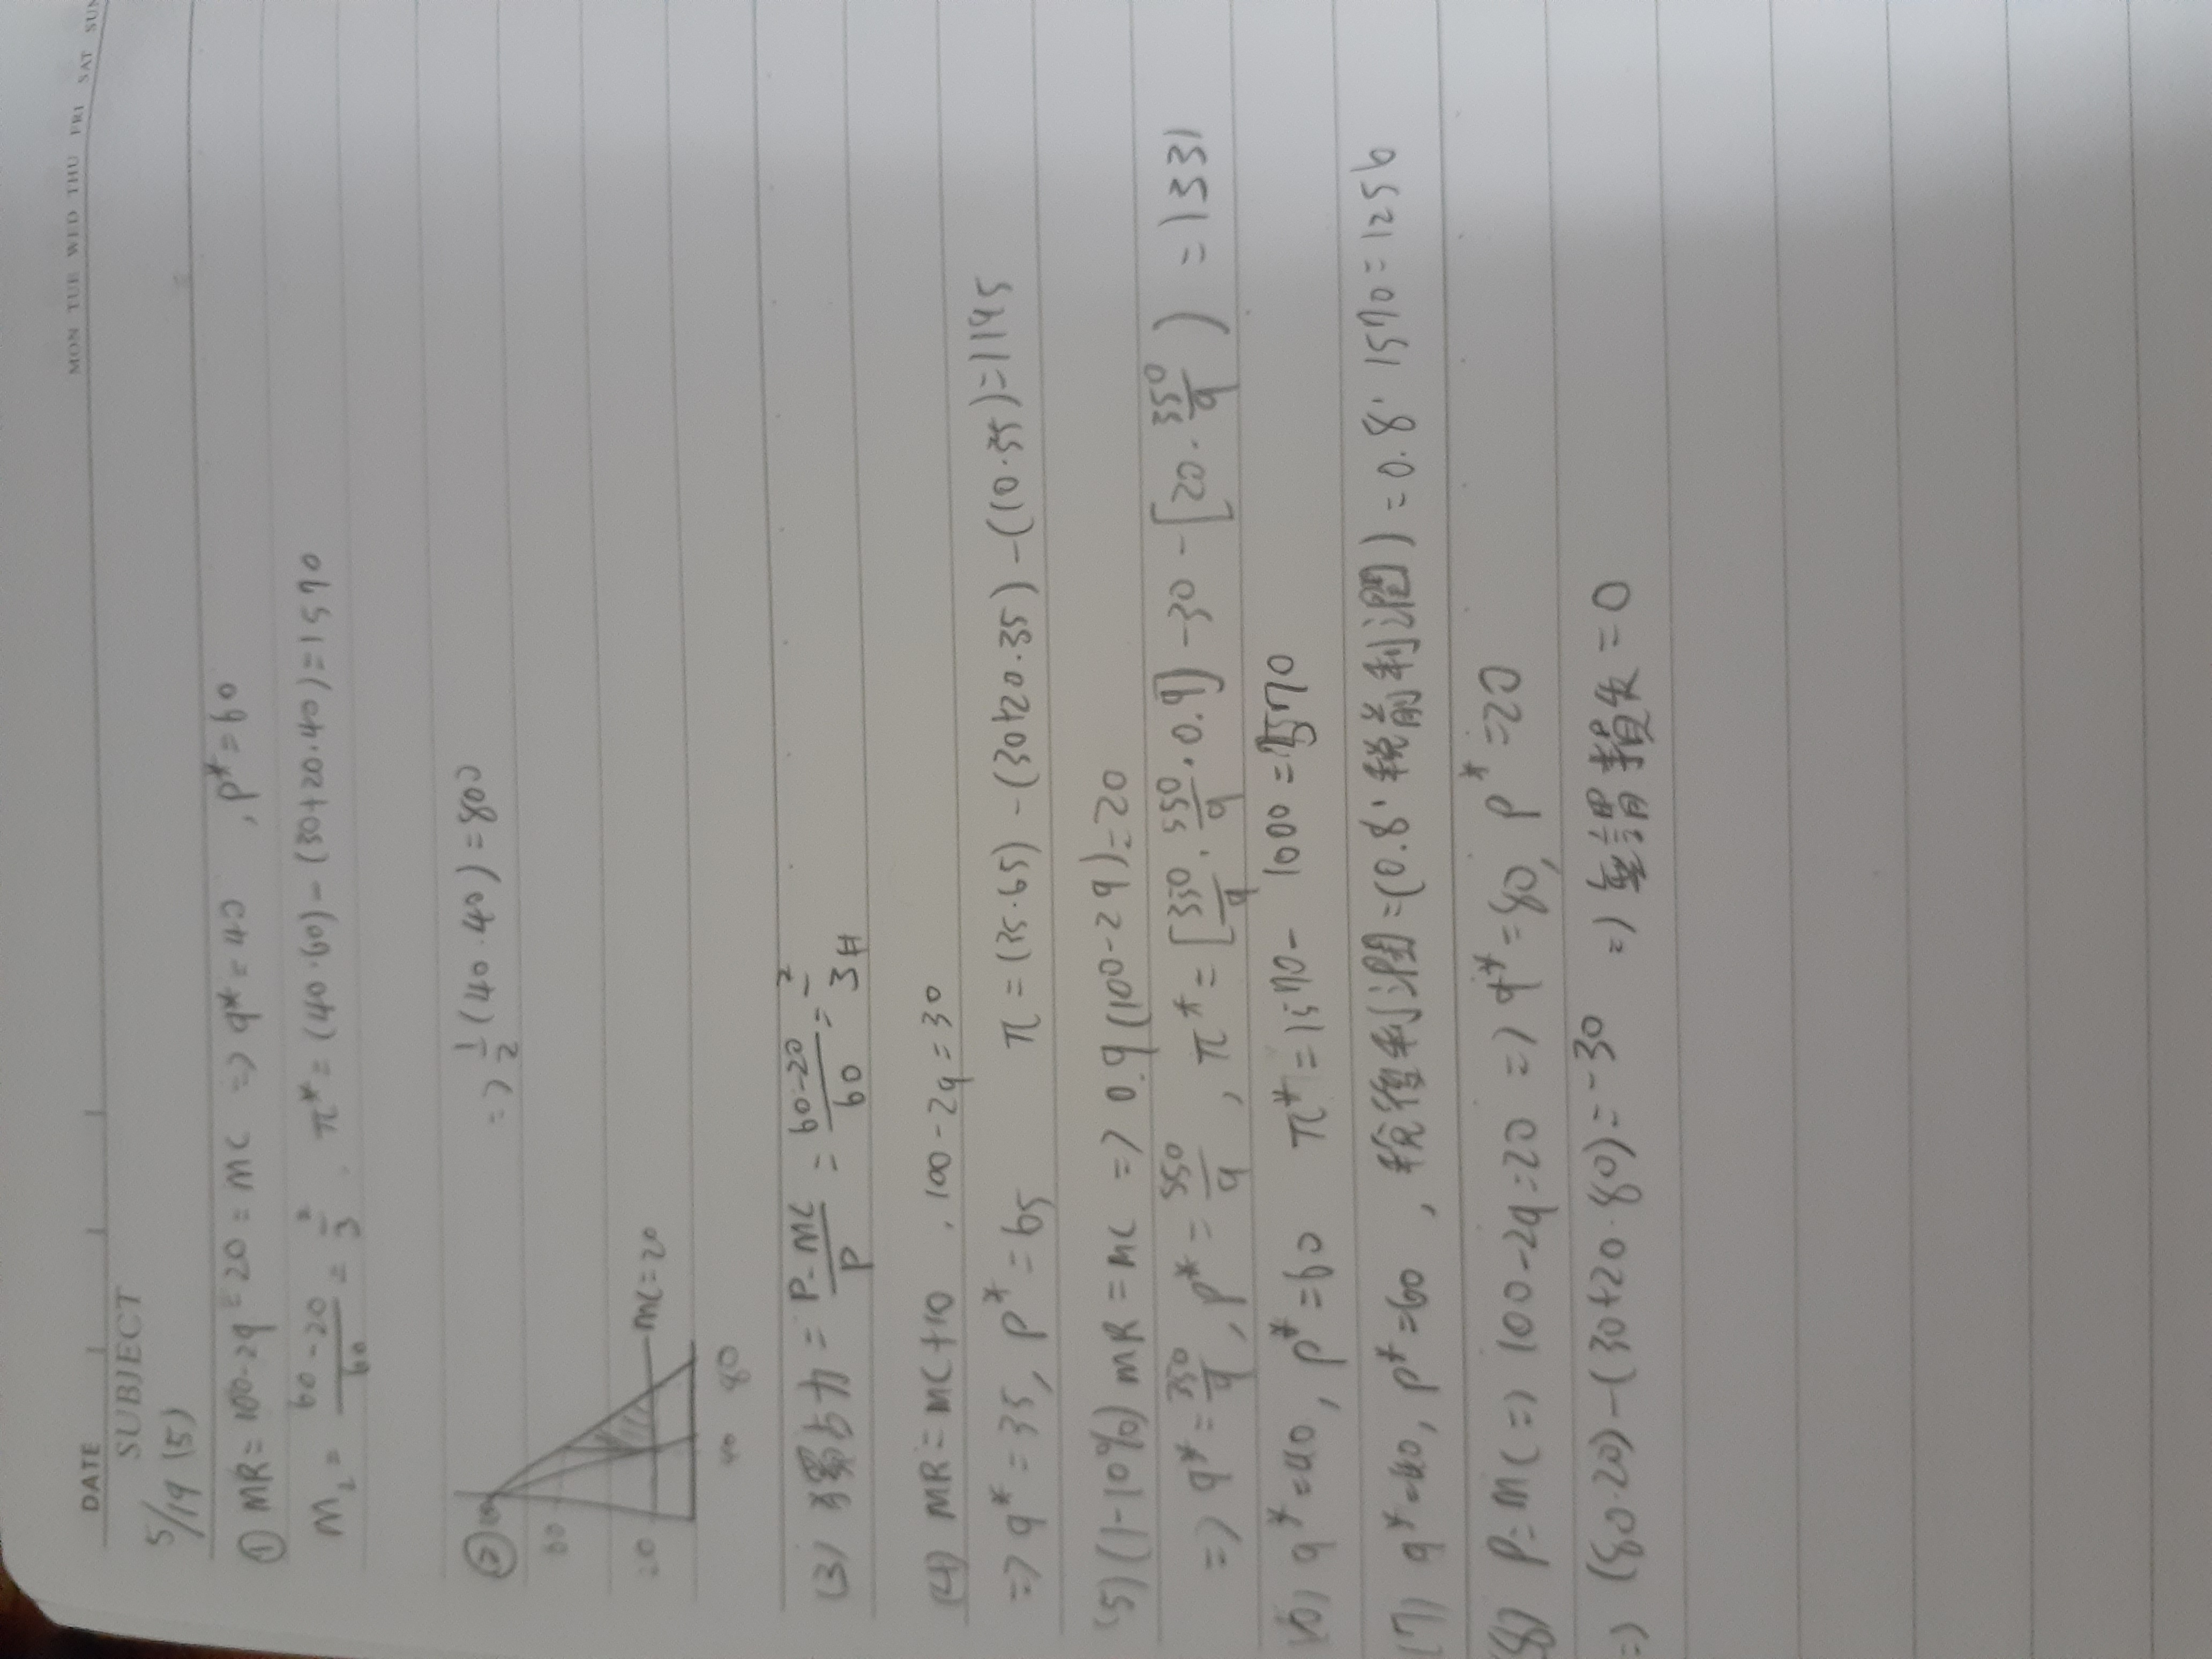 DATE
MON TUE WED THU FRI SAT SUN
SUBJECT
5/19 (5)
① MR = 100-2q = 20 = MC => q* = 40 , p* = 60
M_L = \frac{60-20}{60} = \frac{2}{3} , π* = (40·60) - (30+20·40) = 1570
② => \frac{1}{2} (40·40) = 800
60
20
MC = 20
40 80
(3) 獨占力 = \frac{P-MC}{P} = \frac{60-20}{60} = \frac{2}{3} #
(4) MR = MC + 10 , 100 - 2q = 30
=> q* = 35, p* = 65 π = (35·65) - (30+20·35) - (10·35) = 1195
(5) (1-10%) MR = MC => 0.9 (100-2q) = 20
=> q* = \frac{350}{9} , p* = \frac{550}{9} , π* = [\frac{350}{9} · \frac{550}{9} · 0.9] - 30 - [20 · \frac{350}{9} ) = 1331
(6) q* = 40, p* = 60 π* = 1570 - 1000 = 570
(7) q* = 40, p* = 60 , 稅後利潤 = (0.8 · 稅前利潤) = 0.8 · 1570 = 1256
(8) P = MC => 100 - 2q = 20 => q* = 80, p* = 20
=> (80·20) - (30+20·80) = -30 => 無謂損失 = 0